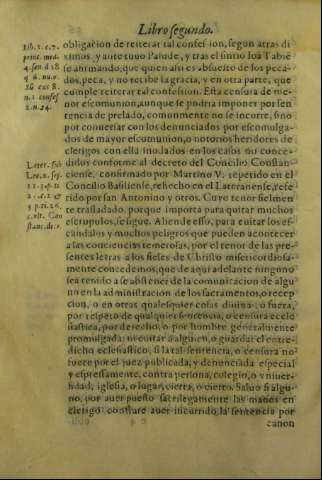 Libro segundo.
obligacion de reiterar tal confession, segun atras di
ximos, y ante tuuo Palude, y tras el sintio Ioā Tabiē
se añimando, que quien assi es absuelto de los peca-
dos, peca, y no recibe la gracia, y en otra parte, que
cumple reiterar tal confession. Esta censura de me-
nor escomunion, aunque se podria imponer por sen
tencia de prelado, comunmente no se incorre, sino
por conuersar con los denunciados por escomulga-
dos de mayor escomunion, o notorios heridores de
clerigos con ellā inodados en los casos no conce-
didos conforme al decreto del Concilio Constan-
ciense, confirmado por Martino V. repetido en el
Concilio Basiliense, rehecho en el Lateranense, refe
rido por san Antonino y otros. Cuyo tenor fielmen
te trasladado, porque importa para quitar muchos
escrupulos, se sigue. Aliende esso, para euitar los es-
candalos y muchos peligros que pueden acontecer
a las conciencias temerosas, por el tenor de las pre-
sentes letras a los fieles de Christo misericordiosa-
mente concedemos, que de aqui adelante ninguno
sea tenido a se abstener de la comunicacion de algu
no en la administracion de los sacramentos, o recep
cion, o en otras qualesquier cosas diuinas o fuera,
por respeto de qualquier sentencia, o censura eccle
siastica, por derecho, o por hombre generalmente
promulgada: ni euitar a alguien, o guardar el entre-
dicho eclesiastico, si la tal sentencia, o censura no
fuere por el juez publicada, y denunciada especial
y espressamente, contra persona, colegio, o vniuer-
sidad, iglesia, o lugar, cierra, o cierto. Saluo si algu-
no, por auer puesto sacrilegamente las manos en
clerigo constare auer incurrido la sentencia por
canon
Lib. 1. c. 7.
Later. sub
Leo. x. ses.
Constanc. de.